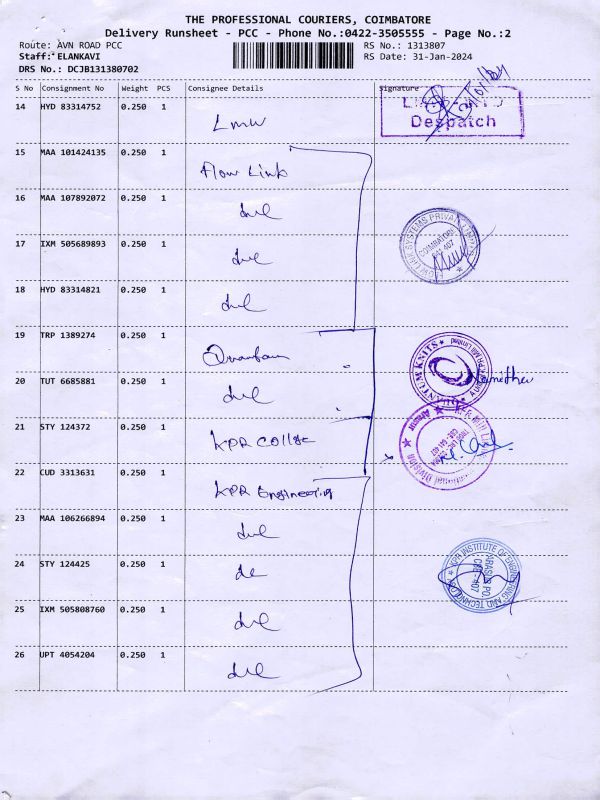 THE PROFESSIONAL COURIERS, COIMBATORE
Delivery Runsheet - PCC - Phone No.:0422-3505555 - Page No.:2
Route: AVN ROAD PCC RS No.: 1313807
Staff: ELANKAVI RS Date: 31-Jan-2024
DRS No.: DCJB131380702
S No Consignment No Weight PCS Consignee Details Signature
14 HYD 83314752 0.250 1 LMW
Despatch
15 MAA 101424135 0.250 1 Flow Link
16 MAA 107892072 0.250 1
17 IXM 505689893 0.250 1
COIMBATORE
18 HYD 83314821 0.250 1
19 TRP 1389274 0.250 1 Quantum
QUANTUM KNITS
20 TUT 6685881 0.250 1
21 STY 124372 0.250 1 KPR College
22 CUD 3313631 0.250 1 KPR Engineering
23 MAA 106266894 0.250 1
24 STY 124425 0.250 1
KPR INSTITUTE OF ENGINEERING AND TECHNOLOGY
25 IXM 505808760 0.250 1
26 UPT 4054204 0.250 1